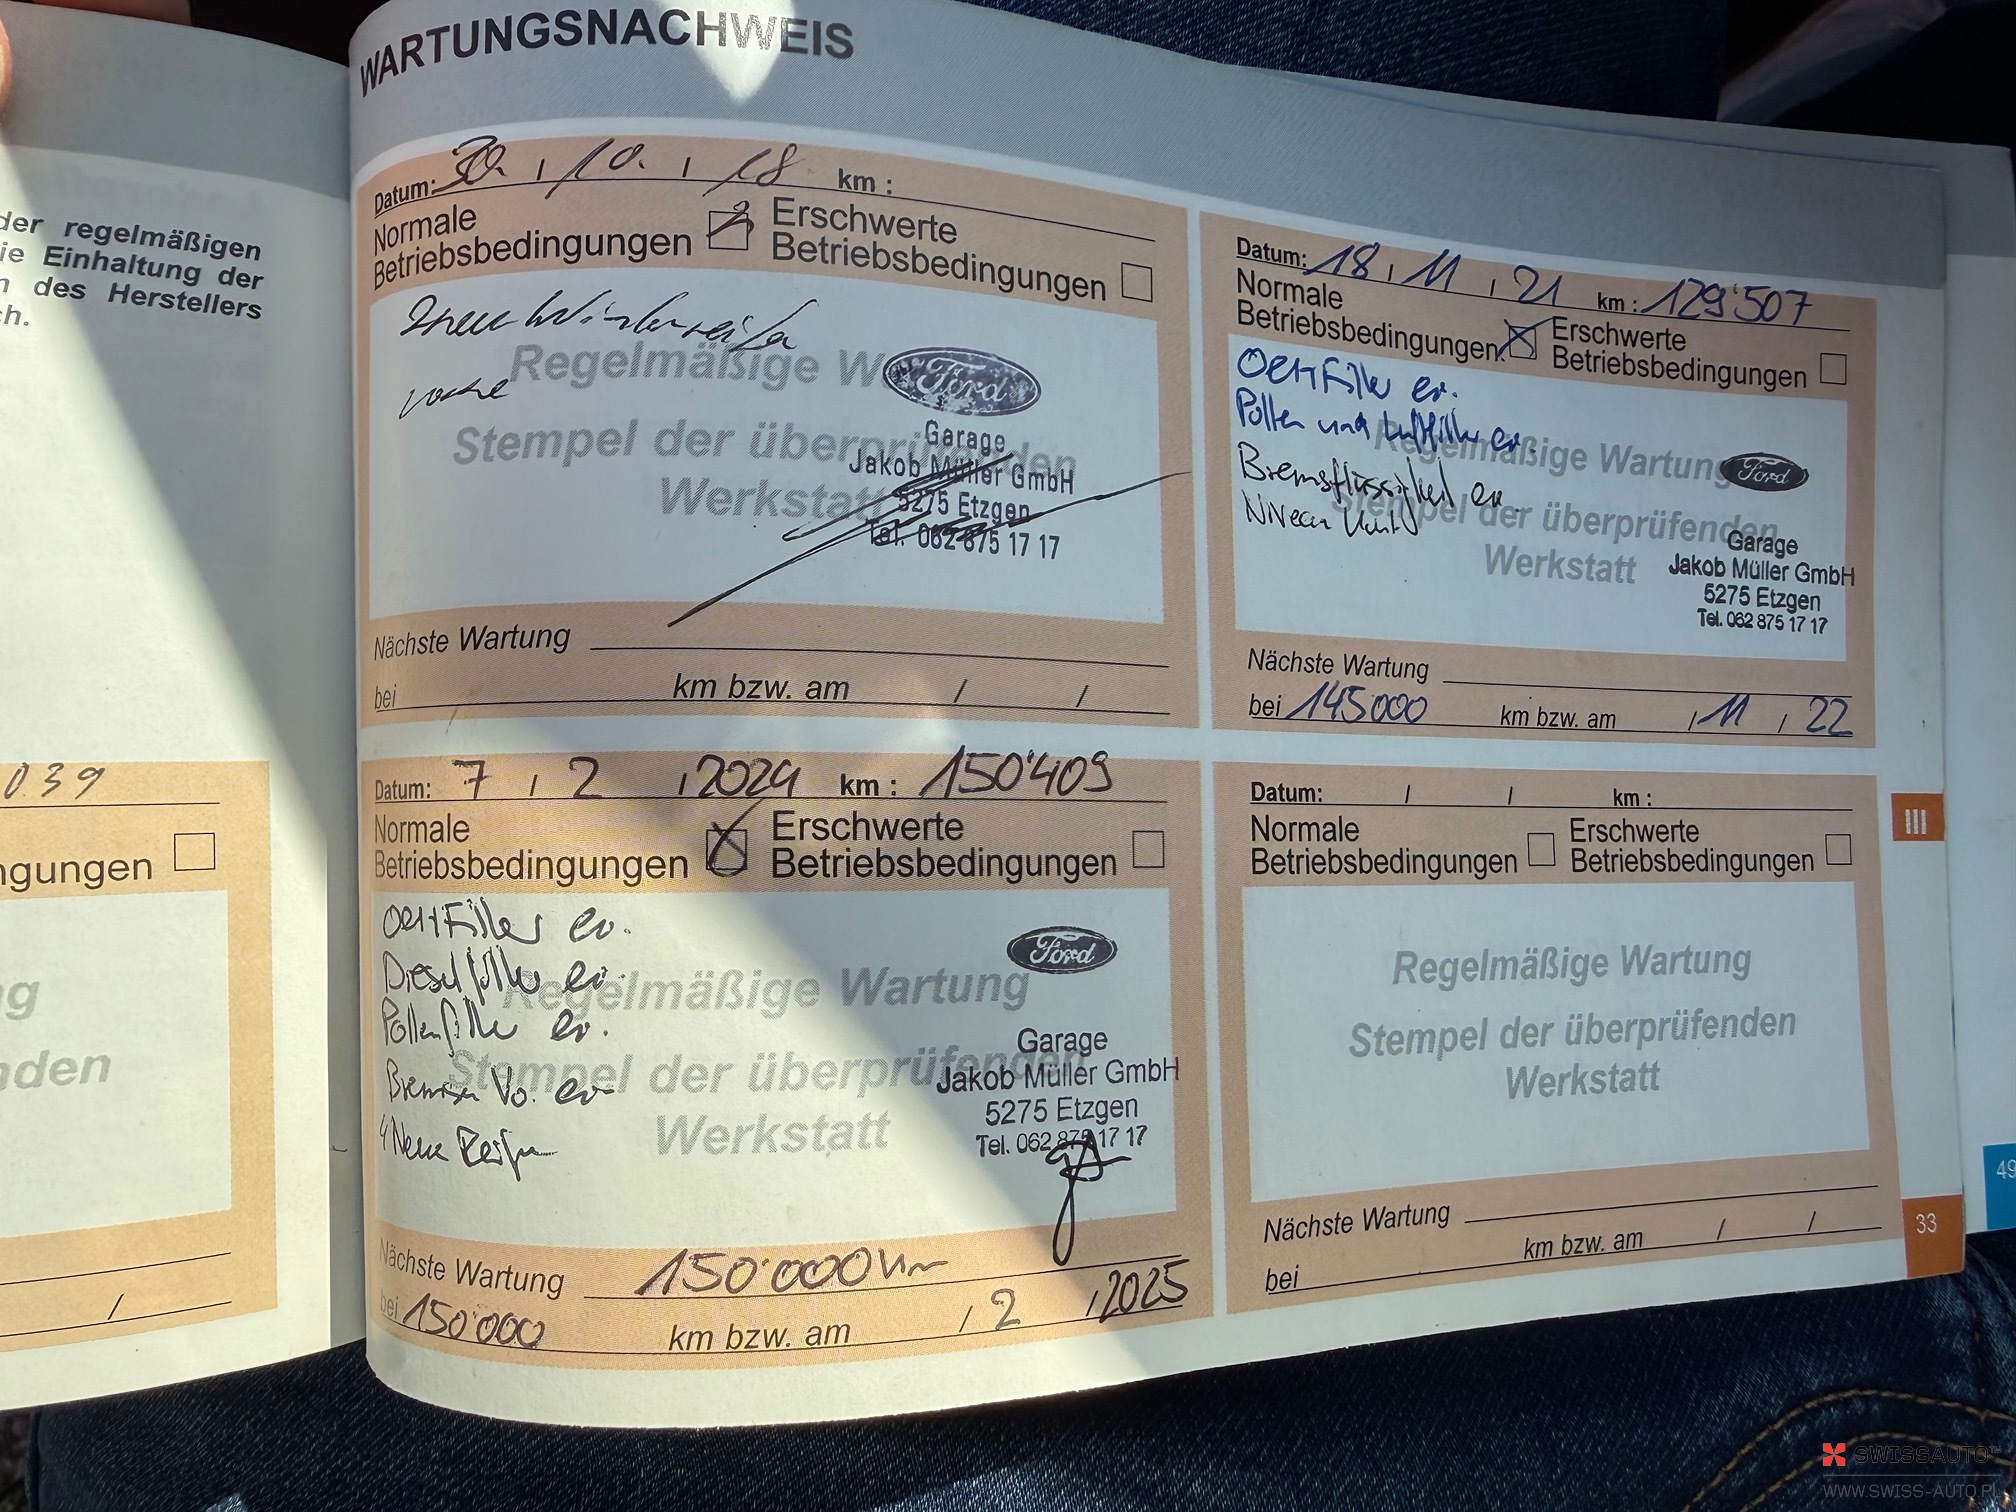 der regelmäßigen
ie Einhaltung der
n des Herstellers
ch.
039
ngungen
ng
nden
/
WARTUNGSNACHWEIS
Datum: 30. / 10. / 18 km :
Normale
Betriebsbedingungen
Erschwerte
Betriebsbedingungen
Winterreifen
Regelmäßige W
Stempel der überprüfenden
Werkstatt
Ford
Garage
Jakob Müller GmbH
5275 Etzgen
Tel. 062 875 17 17
Nächste Wartung
bei km bzw. am / /
Datum: 18 / 11 / 21 km : 129'507
Normale
Betriebsbedingungen
Erschwerte
Betriebsbedingungen
Oel+Filter er.
Pollen und Luftfilter er.
Bremsflüssigkeit er.
Regelmäßige Wartung
Stempel der überprüfenden
Werkstatt
Ford
Garage
Jakob Müller GmbH
5275 Etzgen
Tel. 062 875 17 17
Nächste Wartung
bei 145000 km bzw. am / 11 / 22
Datum: 7 / 2 / 2024 km : 150'409
Normale
Betriebsbedingungen
Erschwerte
Betriebsbedingungen
Oel+Filter er.
Dieselfilter er.
Pollenfilter er.
Bremsen Vo. er.
4 Neue Reifen
Regelmäßige Wartung
Stempel der überprüfenden
Werkstatt
Ford
Garage
Jakob Müller GmbH
5275 Etzgen
Tel. 062 875 17 17
Nächste Wartung 150'000 km
bei 150'000 km bzw. am / 2 / 2025
Datum: / / km :
Normale
Betriebsbedingungen
Erschwerte
Betriebsbedingungen
Regelmäßige Wartung
Stempel der überprüfenden
Werkstatt
Nächste Wartung
bei km bzw. am / /
III
33
49
SWISSAUTO
WWW.SWISS-AUTO.PL